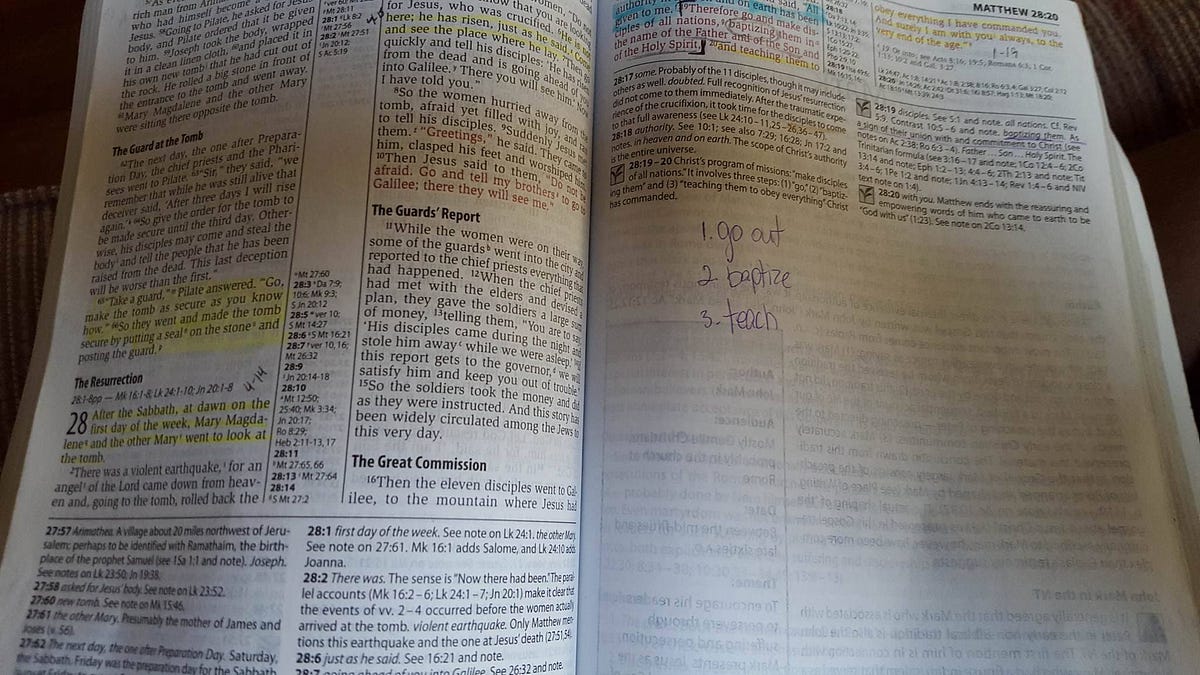 rich man from
had himself become a
Jesus. ⁵⁸Going to Pilate, he asked for Jesus'
body, and Pilate ordered that it be given
⁵⁹Joseph took the body, wrapped
it in a clean linen cloth, ⁶⁰and placed it in
his own new tomb that he had cut out of
the rock. He rolled a big stone in front of
the entrance to the tomb and went away.
⁶¹Mary Magdalene and the other Mary
were sitting there opposite the tomb.
The Guard at the Tomb
⁶²The next day, the one after Prepara-
tion Day, the chief priests and the Phari-
sees went to Pilate. ⁶³"Sir," they said, "we
remember that while he was still alive that
deceiver said, 'After three days I will rise
again.' ⁶⁴So give the order for the tomb to
be made secure until the third day. Other-
wise, his disciples may come and steal the
body and tell the people that he has been
raised from the dead. This last deception
will be worse than the first."
⁶⁵"Take a guard," Pilate answered. "Go,
make the tomb as secure as you know
how." ⁶⁶So they went and made the tomb
secure by putting a seal on the stone and
posting the guard.
The Resurrection
28:1-8pp — Mk 16:1-8; Lk 24:1-10; Jn 20:1-8
4-14
28 After the Sabbath, at dawn on the
first day of the week, Mary Magda-
lene and the other Mary went to look at
the tomb.
²There was a violent earthquake, for an
angel of the Lord came down from heav-
en and, going to the tomb, rolled back the
Mt 27:60
28:3 Da 7:9;
10:6; Mk 9:3;
Jn 20:12
28:5 ver 10;
Mt 14:27
28:6 Mt 16:21
28:7 ver 10, 16;
Mt 26:32
28:9
Jn 20:14-18
28:10
Mt 12:50;
25:40; Mk 3:34;
Jn 20:17;
Ro 8:29;
Heb 2:11-13, 17
28:11
Mt 27:65, 66
28:13 Mt 27:64
28:14
Mt 27:2
for Jesus, who was crucified.
here; he has risen, just as he said. Come
and see the place where he lay. ⁷Then go
quickly and tell his disciples: 'He has risen
from the dead and is going ahead of you
into Galilee. There you will see him.' Now
I have told you."
⁸So the women hurried away from the
tomb, afraid yet filled with joy, and ran
to tell his disciples. ⁹Suddenly Jesus met
them. "Greetings," he said. They came to
him, clasped his feet and worshiped him.
¹⁰Then Jesus said to them, "Do not be
afraid. Go and tell my brothers to go to
Galilee; there they will see me."
The Guards' Report
¹¹While the women were on their way,
some of the guards went into the city and
reported to the chief priests everything that
had happened. ¹²When the chief priests
had met with the elders and devised a
plan, they gave the soldiers a large sum
of money, ¹³telling them, "You are to say,
'His disciples came during the night and
stole him away while we were asleep.' ¹⁴If
this report gets to the governor, we will
satisfy him and keep you out of trouble."
¹⁵So the soldiers took the money and did
as they were instructed. And this story has
been widely circulated among the Jews to
this very day.
The Great Commission
¹⁶Then the eleven disciples went to Gal-
ilee, to the mountain where Jesus had
27:57 Arimathea. A village about 20 miles northwest of Jeru-
salem; perhaps to be identified with Ramathaim, the birth-
place of the prophet Samuel (see 1Sa 1:1 and note). Joseph.
See notes on Lk 23:50; Jn 19:38.
27:58 asked for Jesus' body. See note on Lk 23:52.
27:60 new tomb. See note on Mk 15:46.
27:61 the other Mary. Presumably the mother of James and
Joses (v. 56).
27:62 The next day, the one after Preparation Day. Saturday,
the Sabbath. Friday was the preparation day for the Sabbath
28:1 first day of the week. See note on Lk 24:1. the other Mary.
See note on 27:61. Mk 16:1 adds Salome, and Lk 24:10 adds
Joanna.
28:2 There was. The sense is "Now there had been." The paral-
lel accounts (Mk 16:2–6; Lk 24:1–7; Jn 20:1) make it clear that
the events of vv. 2–4 occurred before the women actually
arrived at the tomb. violent earthquake. Only Matthew men-
tions this earthquake and the one at Jesus' death (27:51,54).
28:6 just as he said. See 16:21 and note.
28:7 going ahead of you into Galilee. See 26:32 and note.
MATTHEW 28:20
authority in heaven and on earth has been
given to me. Therefore go and make dis-
ciples of all nations, baptizing them in
the name of the Father and of the Son and
of the Holy Spirit, ²⁰and teaching them to
obey everything I have commanded you.
And surely I am with you always, to the
very end of the age."
1-19
28:17 some. Probably of the 11 disciples, though it may include
others as well. doubted. Full recognition of Jesus' resurrection
did not come to them immediately. After the traumatic expe-
rience of the crucifixion, it took time for the disciples to come
to that full awareness (see Lk 24:10–11,25–26,36–47).
28:18 authority. See 10:1; see also 7:29; 16:28; Jn 17:2 and
notes. in heaven and on earth. The scope of Christ's authority
is the entire universe.
28:19–20 Christ's program of missions: "make disciples
of all nations." It involves three steps: (1) "go," (2) "baptiz-
ing them" and (3) "teaching them to obey everything" Christ
has commanded.
28:19 disciples. See 5:1 and note. all nations. Cf. Rev
5:9. Contrast 10:5–6 and note. baptizing them. As
a sign of their union with and commitment to Christ (see
notes on Ac 2:38; Ro 6:3–4). Father ... Son ... Holy Spirit. The
Trinitarian formula (see 3:16–17 and note; 1Co 12:4–6; 2Co
13:14 and note; Eph 1:2–13; 4:4–6; 2Th 2:13 and note; Tit
3:4–6; 1Pe 1:2 and note; 1Jn 4:13–14; Rev 1:4–6 and NIV
text note on 1:4).
28:20 with you. Matthew ends with the reassuring and
empowering words of him who came to earth to be
"God with us" (1:23). See note on 2Co 13:14.
1. go out
2. baptize
3. teach